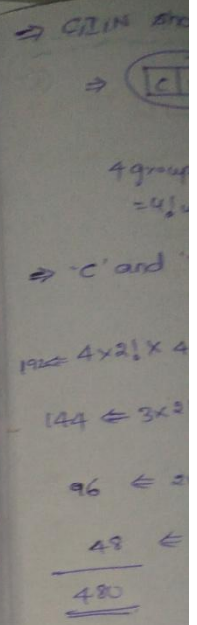 ⇒ GIIN and
⇒ C
4 group
= 4!
⇒ 'C' and '
192 ⇐ 4×2! × 4
144 ⇐ 3×2
96 ⇐ 2
48 ⇐
480